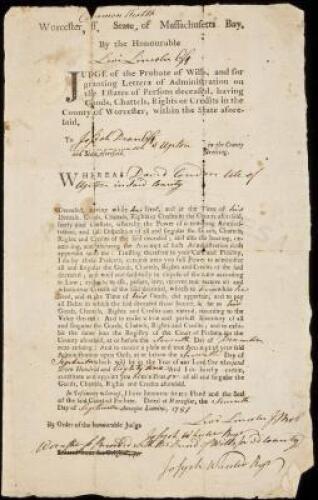 Common Wealth
Worcester, ss. State, of Massachusetts Bay,
By the Honourable
Levi Lincoln Esqr
JUDGE of the Probate of Wills, and for
granting Letters of Administration on
the Estates of Persons deceased, having
Goods, Chattels, Rights or Credits in the
County of Worcester, within the State afore-
said,
To Joseph
of Upton in the County
Greeting.
WHEREAS David late of
Upton in said County
Deceased, having while he lived, and at the Time of his
Decease, Goods, Chattels, Rights or Credits in the County aforesaid,
lately died intestate, whereby the Power of committing Administra-
tion, and full Disposition of all and singular the Goods, Chattels,
Rights and Credits of the said deceased; and also the hearing, exam-
ining, and allowing the Account of such Administration doth
appertain unto me: Trusting therefore in your Care and Fidelity,
I do by these Presents, commit unto you full Power to administer
all and singular the Goods, Chattels, Rights and Credits of the said
deceased; and well and faithfully to dispose of the same according
to Law;
Lived, and at the Time of his Death did appertain; and to pay
all Debts in which the said deceased stood bound, so far as his
Goods, Chattels, Rights and Credits can extend, according to the
Value thereof: And to make a true and perfect Inventory of all
and singular the Goods, Chattels, Rights and Credits; and to exhi-
bit the same into the Registry of the Court of Probate for the
County aforesaid, at or before the Seventh Day of December
next ensuing; And to render a plain and true Account of your said
Administration upon Oath, at or before the Seventh Day of
September which will be in the Year of our Lord One thousand
Seven Hundred and Eighty And I do hereby ordain,
constitute and appoint you of all and singular the
Goods, Chattels, Rights and Credits aforesaid.
In Testimony whereof, I have hereunto set my Hand and the Seal
of the said Court of Probate. Dated at Worcester, the Seventh
Day of September Annoque Domini, 1781
Levi Lincoln J Prob
By Order of the honourable Judge
Joseph Wheeler Regr
Worcester ss
Joseph Wheeler Regr